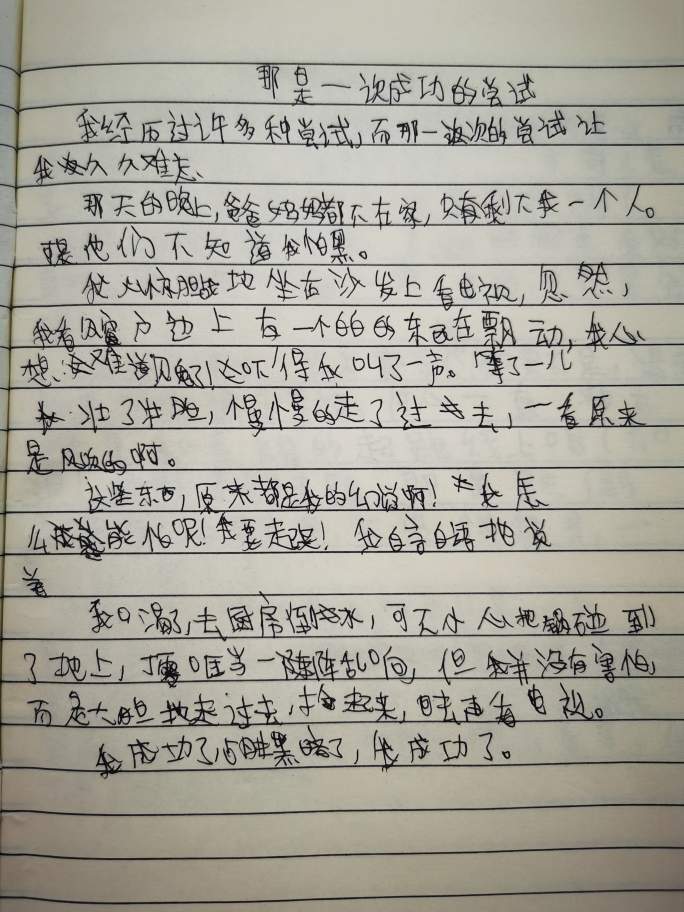 那是一次成功的尝试
我经历过许多种尝试,而那一次的尝试让
我久久难忘、
那天的晚上,爸爸妈妈都不在家,只有剩下我一个人。
他们不知道我怕黑。
我心惊胆战地坐在沙发上看电视,忽然,
我看见窗户边上有一个白的东西在飘动,我心
想:难道见鬼了!这吓得我叫了一声。等了一儿
我壮了壮胆,慢慢的走了过去,一看原来
是风吹的啊。
这些东西,原来都是我的幻觉啊!我怎
么能怕呢!我要走过!我自言自语地说
着
我口渴了,去厨房倒水,可不小心把锅碰到
了地上,哐当一阵阵乱响,但我并没有害怕,
而是大胆地走过去,起来,回去再看电视。
我成功了,战胜黑暗了,我成功了。